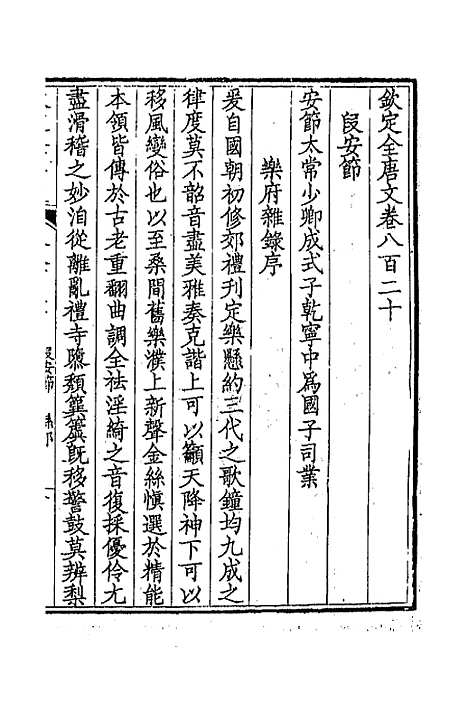 欽定全唐文卷八百二十
段安節
安節太常少卿成式子乾寧中爲國子司業
樂府雜錄序
爰自國朝初修郊禮刋定樂懸約三代之歌鐘均九成之
律度莫不韶音盡美雅奏克諧上可以籲天降神下可以
移風變俗也以至桑間舊樂濮上新聲金絲愼選於精能
本領皆傳於古老重翻曲調全祛淫綺之音復採優伶尢
盡滑稽之妙洎從離亂禮寺隳頹簨簴旣移警鼓莫辨梨
段安節